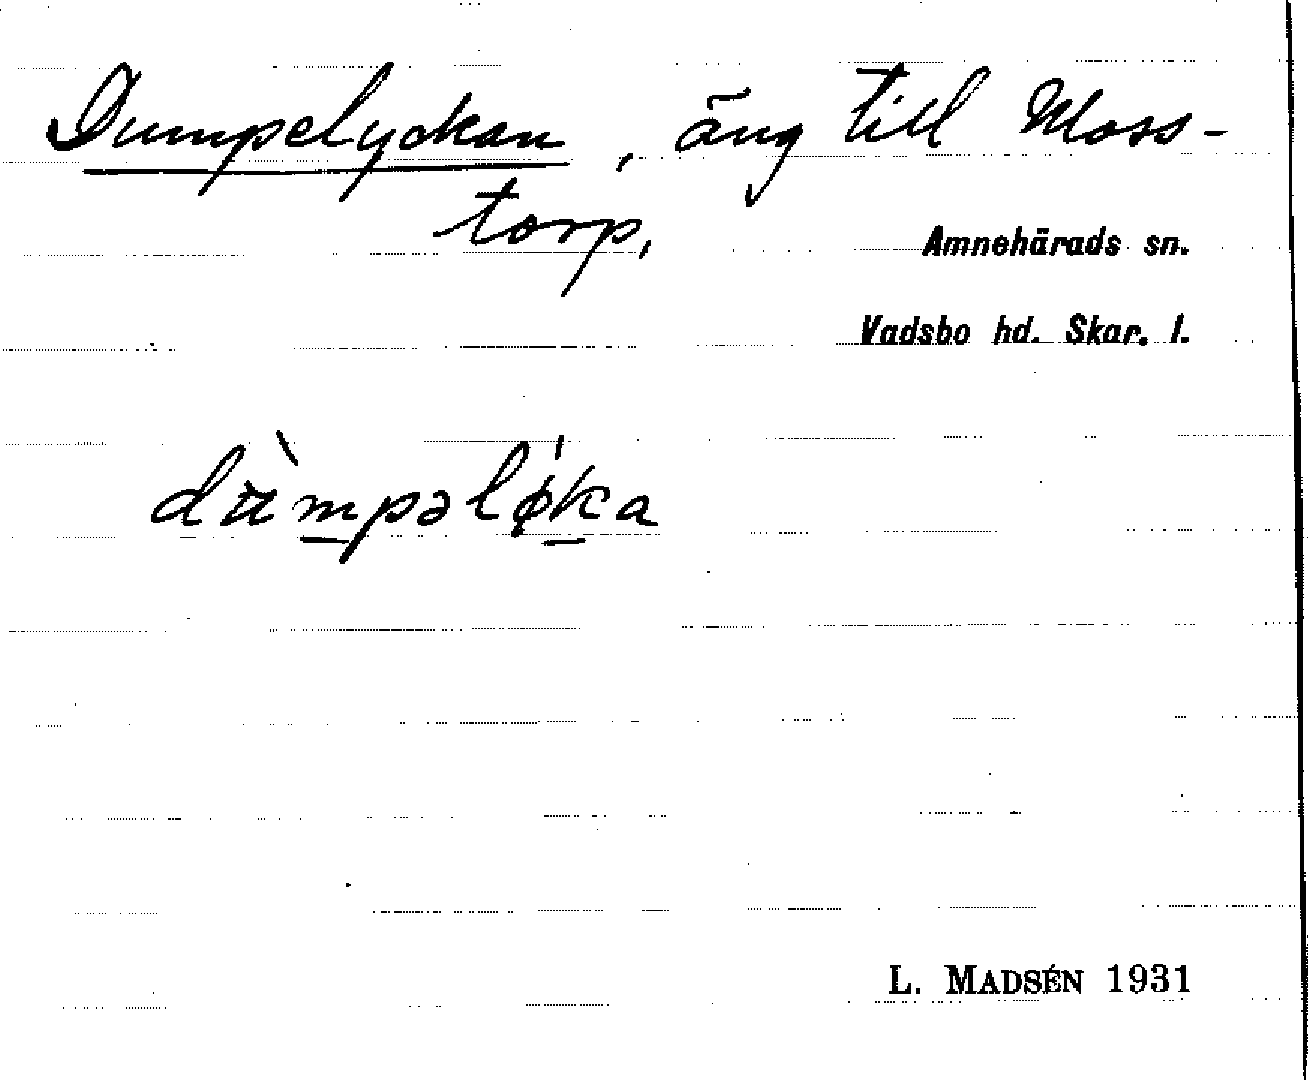 Dumpelyckan, äng till Moss-
torp,
Amnehärads sn.
Vadsbo hd. Skar. l.
dù̈mpəlø̍ka
L. MADSÉN 1931